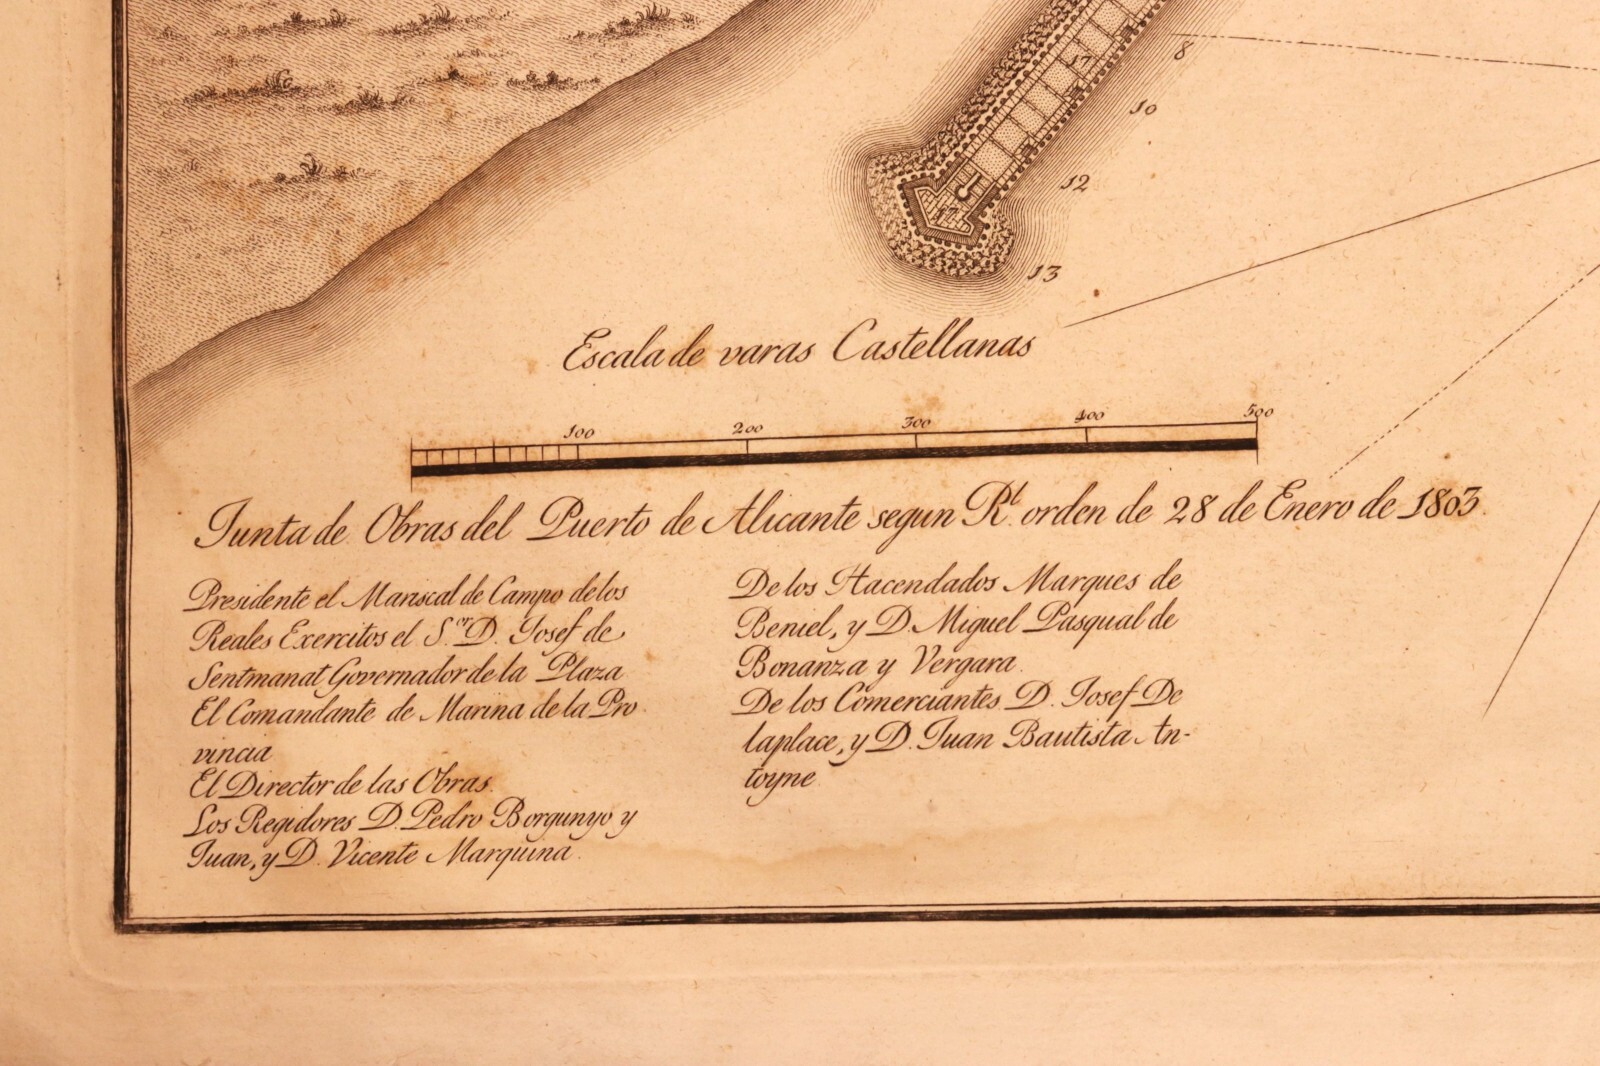 17
8
10
12
17
13
Escala de varas Castellanas
100 200 300 400 500
Junta de Obras del Puerto de Alicante segun Rl. orden de 28 de Enero de 1803.
Presidente el Mariscal de Campo de los
Reales Exercitos el S.or D. Josef de
Sentmanat Governador de la Plaza
El Comandante de Marina de la Pro
vincia
El Director de las Obras.
Los Regidores D. Pedro Borgunyo y
Juan, y D. Vicente Marquina.
De los Hacendados Marques de
Beniel, y D. Miguel Pasqual de
Bonanza y Vergara.
De los Comerciantes D. Josef De
laplace, y D. Juan Bautista An-
toyne